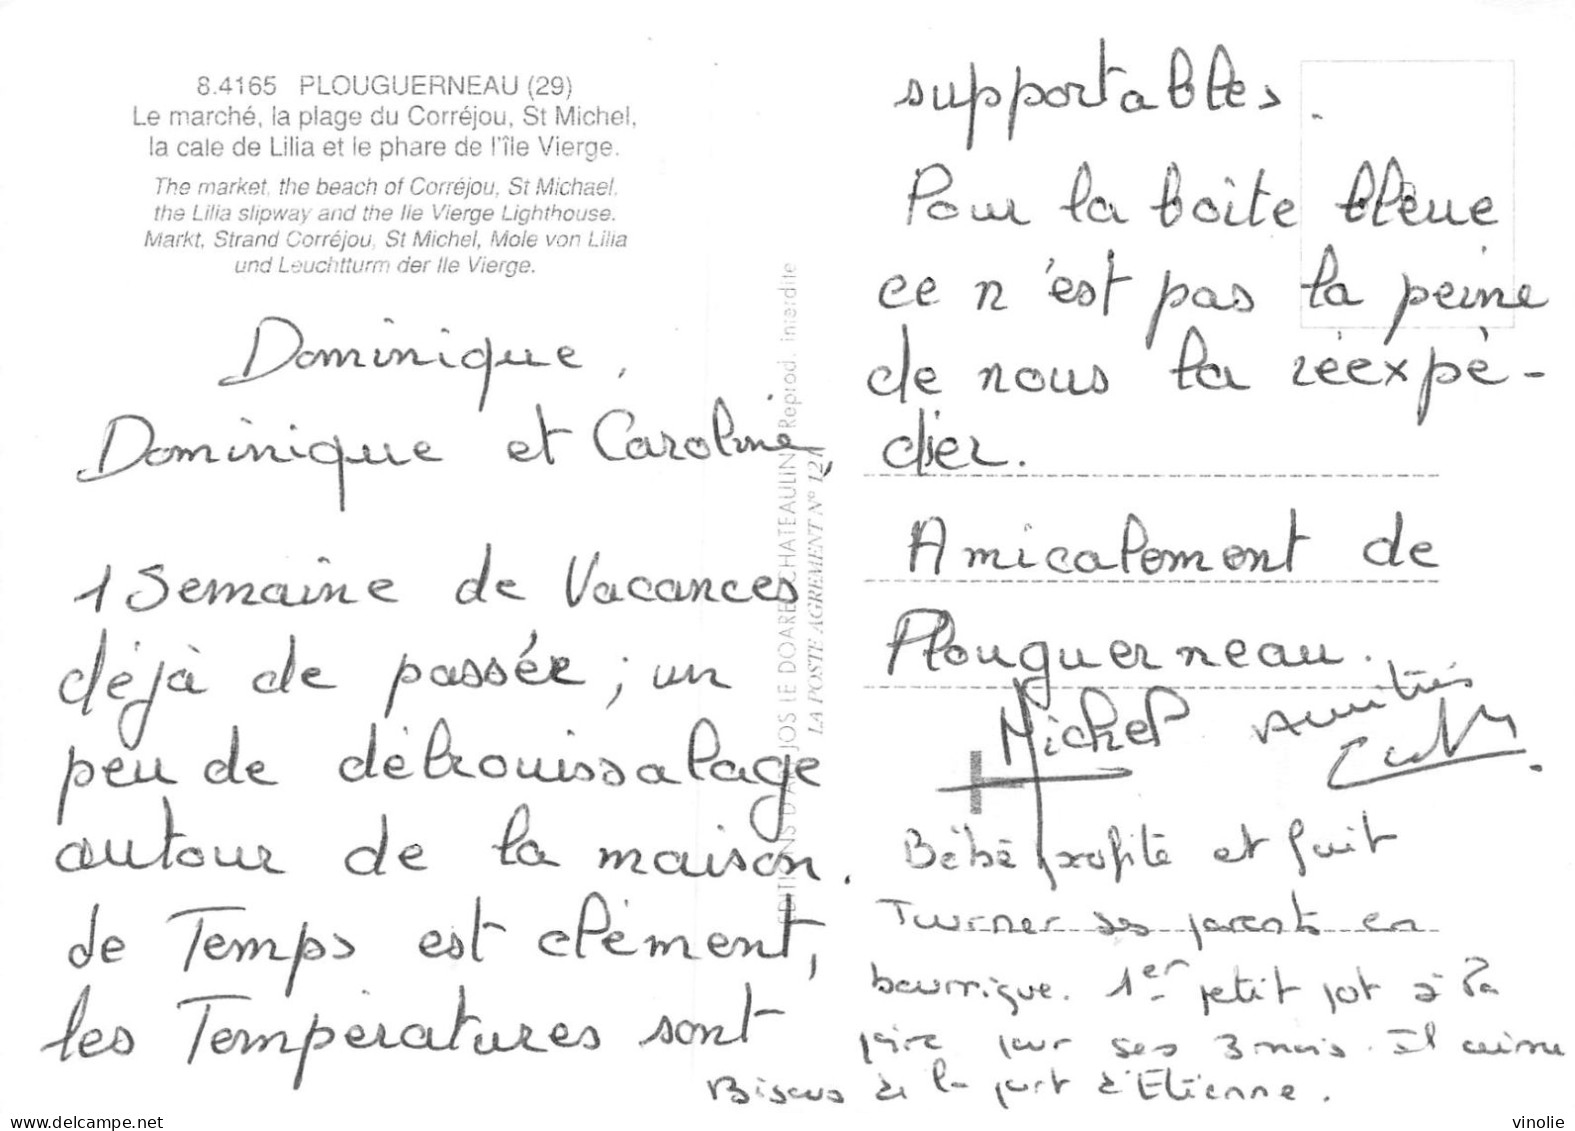 8.4165 PLOUGUERNEAU (29)
Le marché, la plage du Corréjou, St Michel,
la cale de Lilia et le phare de l'île Vierge.
The market, the beach of Corréjou, St Michael,
the Lilia slipway and the Ile Vierge Lighthouse.
Markt, Strand Corréjou, St Michel, Mole von Lilia
und Leuchtturm der Ile Vierge.
Dominique,
Dominique et Caroline,
1 Semaine de Vacances
déjà de passée ; un
peu de débrouissalage
autour de la maison.
de Temps est clément,
les Températures sont
EDITIONS D'ART JOS LE DOARE CHATEAULIN Reprod. interdite
LA POSTE AGREMENT N° 121
supportables.
Pour la boîte bleue
ce n'est pas la peine
de nous la réexpé-
dier.
Amicalement de
Plouguerneau.
Michel Amitiés
Bébé profite et fait
Turner ses parents en
bourrique. 1er petit pot à la
poire pour ses 3 mois. Il aime
Bisous de la part d'Etienne.
vinolie